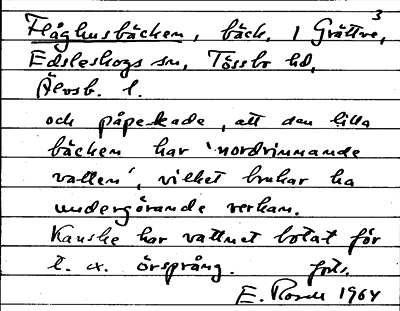 3
Flåghusbäcken, bäck, i Grättve,
Edsleskogs sn, Tössbo hd,
Älvsb. l.
och påpekade, att den lilla
bäcken har 'nordrinnande
vatten', vilket brukar ha
undergörande verkan.
Kanske har vattnet botat för
t. ex. örsprång. forts.
E. Rosell 1964